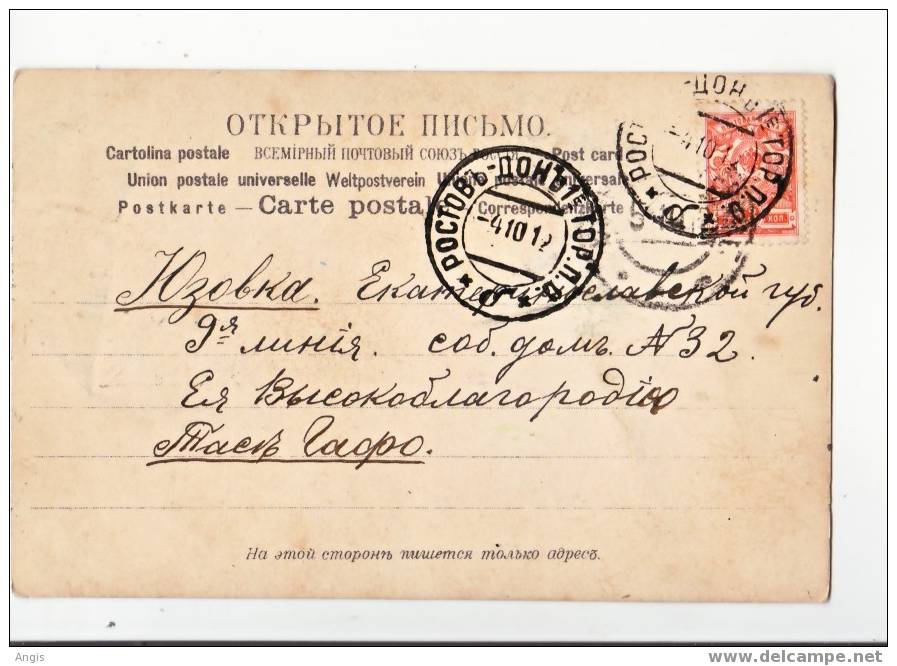 ОТКРЫТОЕ ПИСЬМО.
Cartolina postale ВСЕМІРНЫЙ ПОЧТОВЫЙ СОЮЗЪ. РОССІЯ Post card
Union postale universelle Weltpostverein Union postale universale
Postkarte — Carte postale — Correspondenzkarte
РОСТОВЪ-ДОНЪ ТОР.П.О.
-4 10 12
РОСТ ДОН ТОР.П.О.
-4 10 12
КОП.
Юзовка. Екатеринославской губ.
9я линія. соб. домъ. N 32.
Ея Высокоблагородію
Таскѣ Гафо.
На этой сторонѣ пишется только адресъ.
Angis
www.delcampe.net